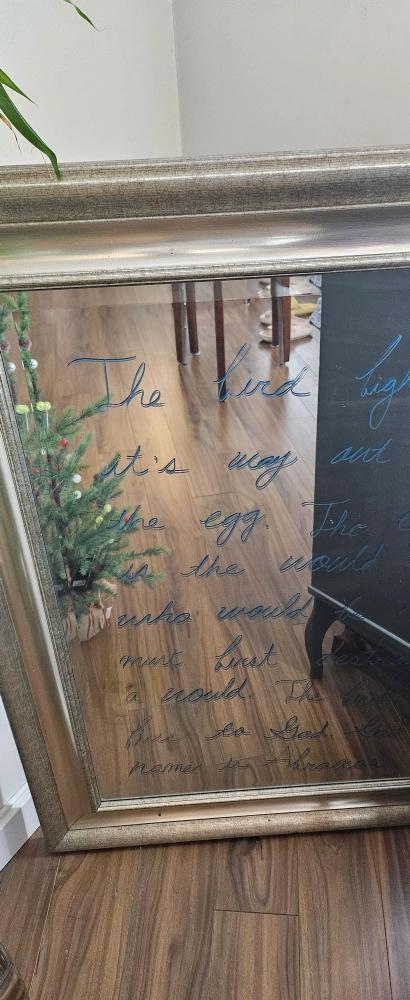 The bird figh
it's way out
the egg. The
is the would
who would
must first destro
a would. The bird
to God. That
name is Abraxas